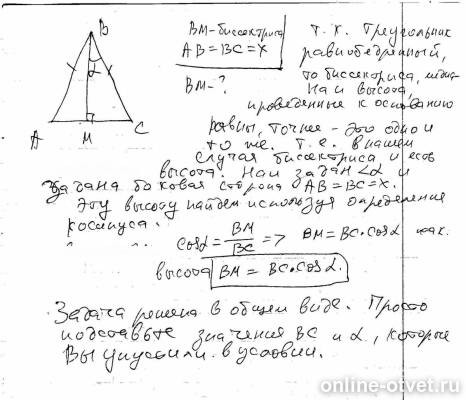 B
α
A
M
C
BM-биссектриса
AB=BC=X
BM-?
Т.К. Треугольник
равнобедренный,
то биссектриса, медиа-
на и высота,
проведенные к основанию
равны, точнее - это одно и
то же. Т.е. в нашем
случае биссектриса и есть
высота. Нам задан ∠α и
задана боковая сторона AB=BC=X.
Эту высоту найдем используя определение
косинуса.
cosα = BM/BC => BM = BC·cosα
высота BM = BC·cosα.
Задача решена в общем виде. Просто
подставьте значения BC и α, которые
Вы упустили в условии.
online-otvet.ru